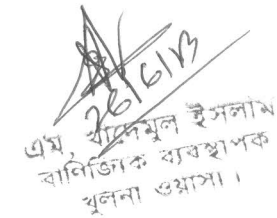 26/6/13
এম, খাদেমুল ইসলাম
বাণিজ্যিক ব্যবস্থাপক
খুলনা ওয়াসা।